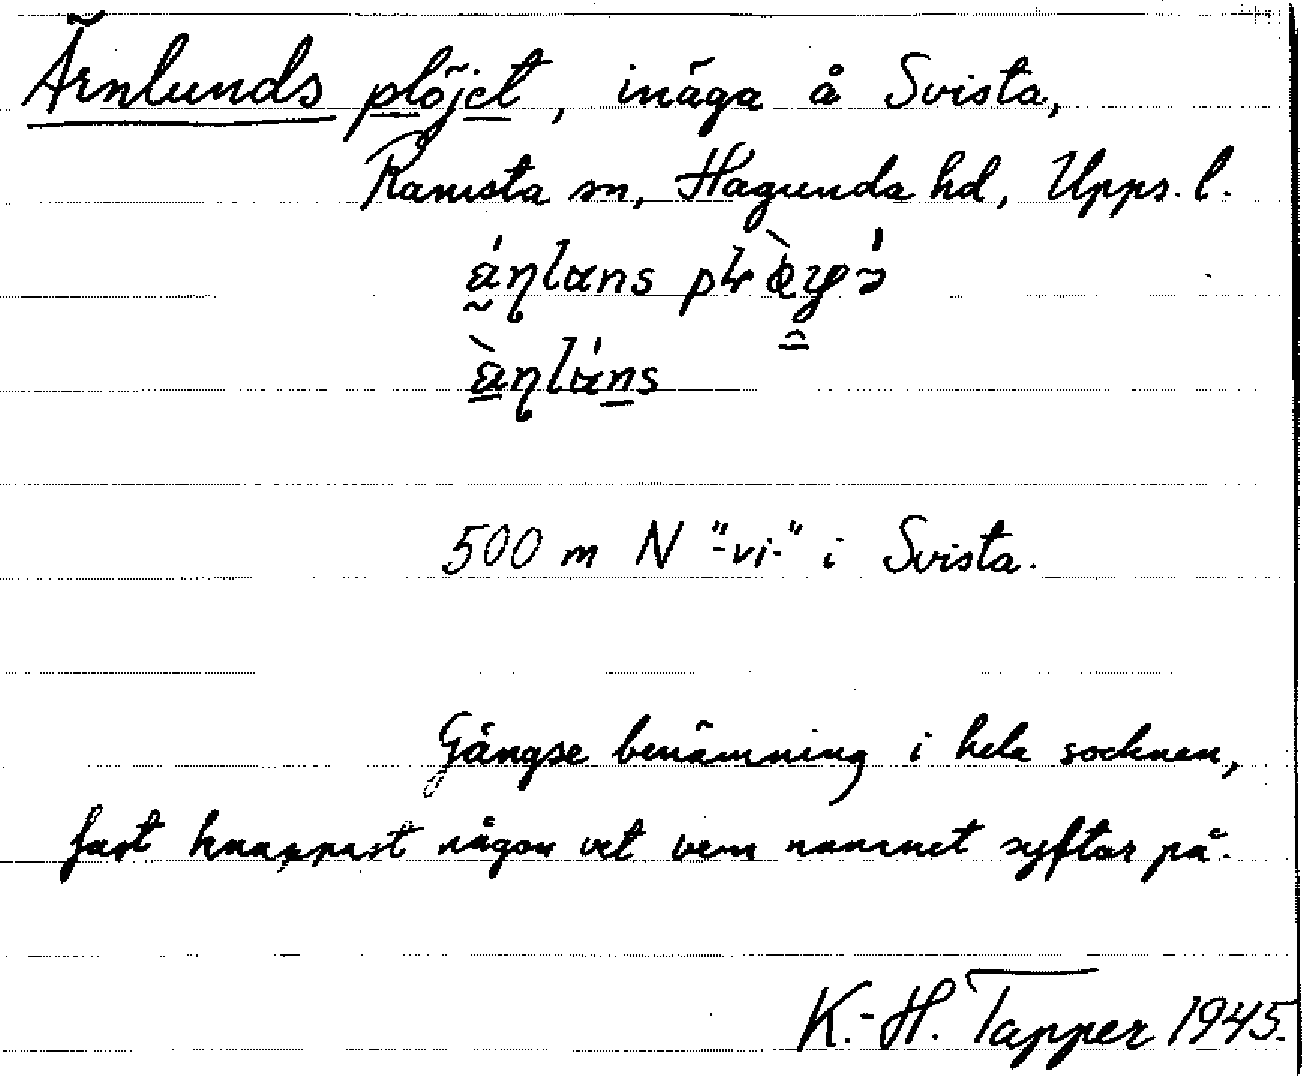 Ärnlunds plöjet, inäga å Svista,
Ramsta sn, Hagunda hd, Upps. l.
500 m N "-vi-" i Svista.
Gängse benämning i hela socknen,
fast knappast någon vet vem namnet syftar på.
K.-H. Tapper 1945.